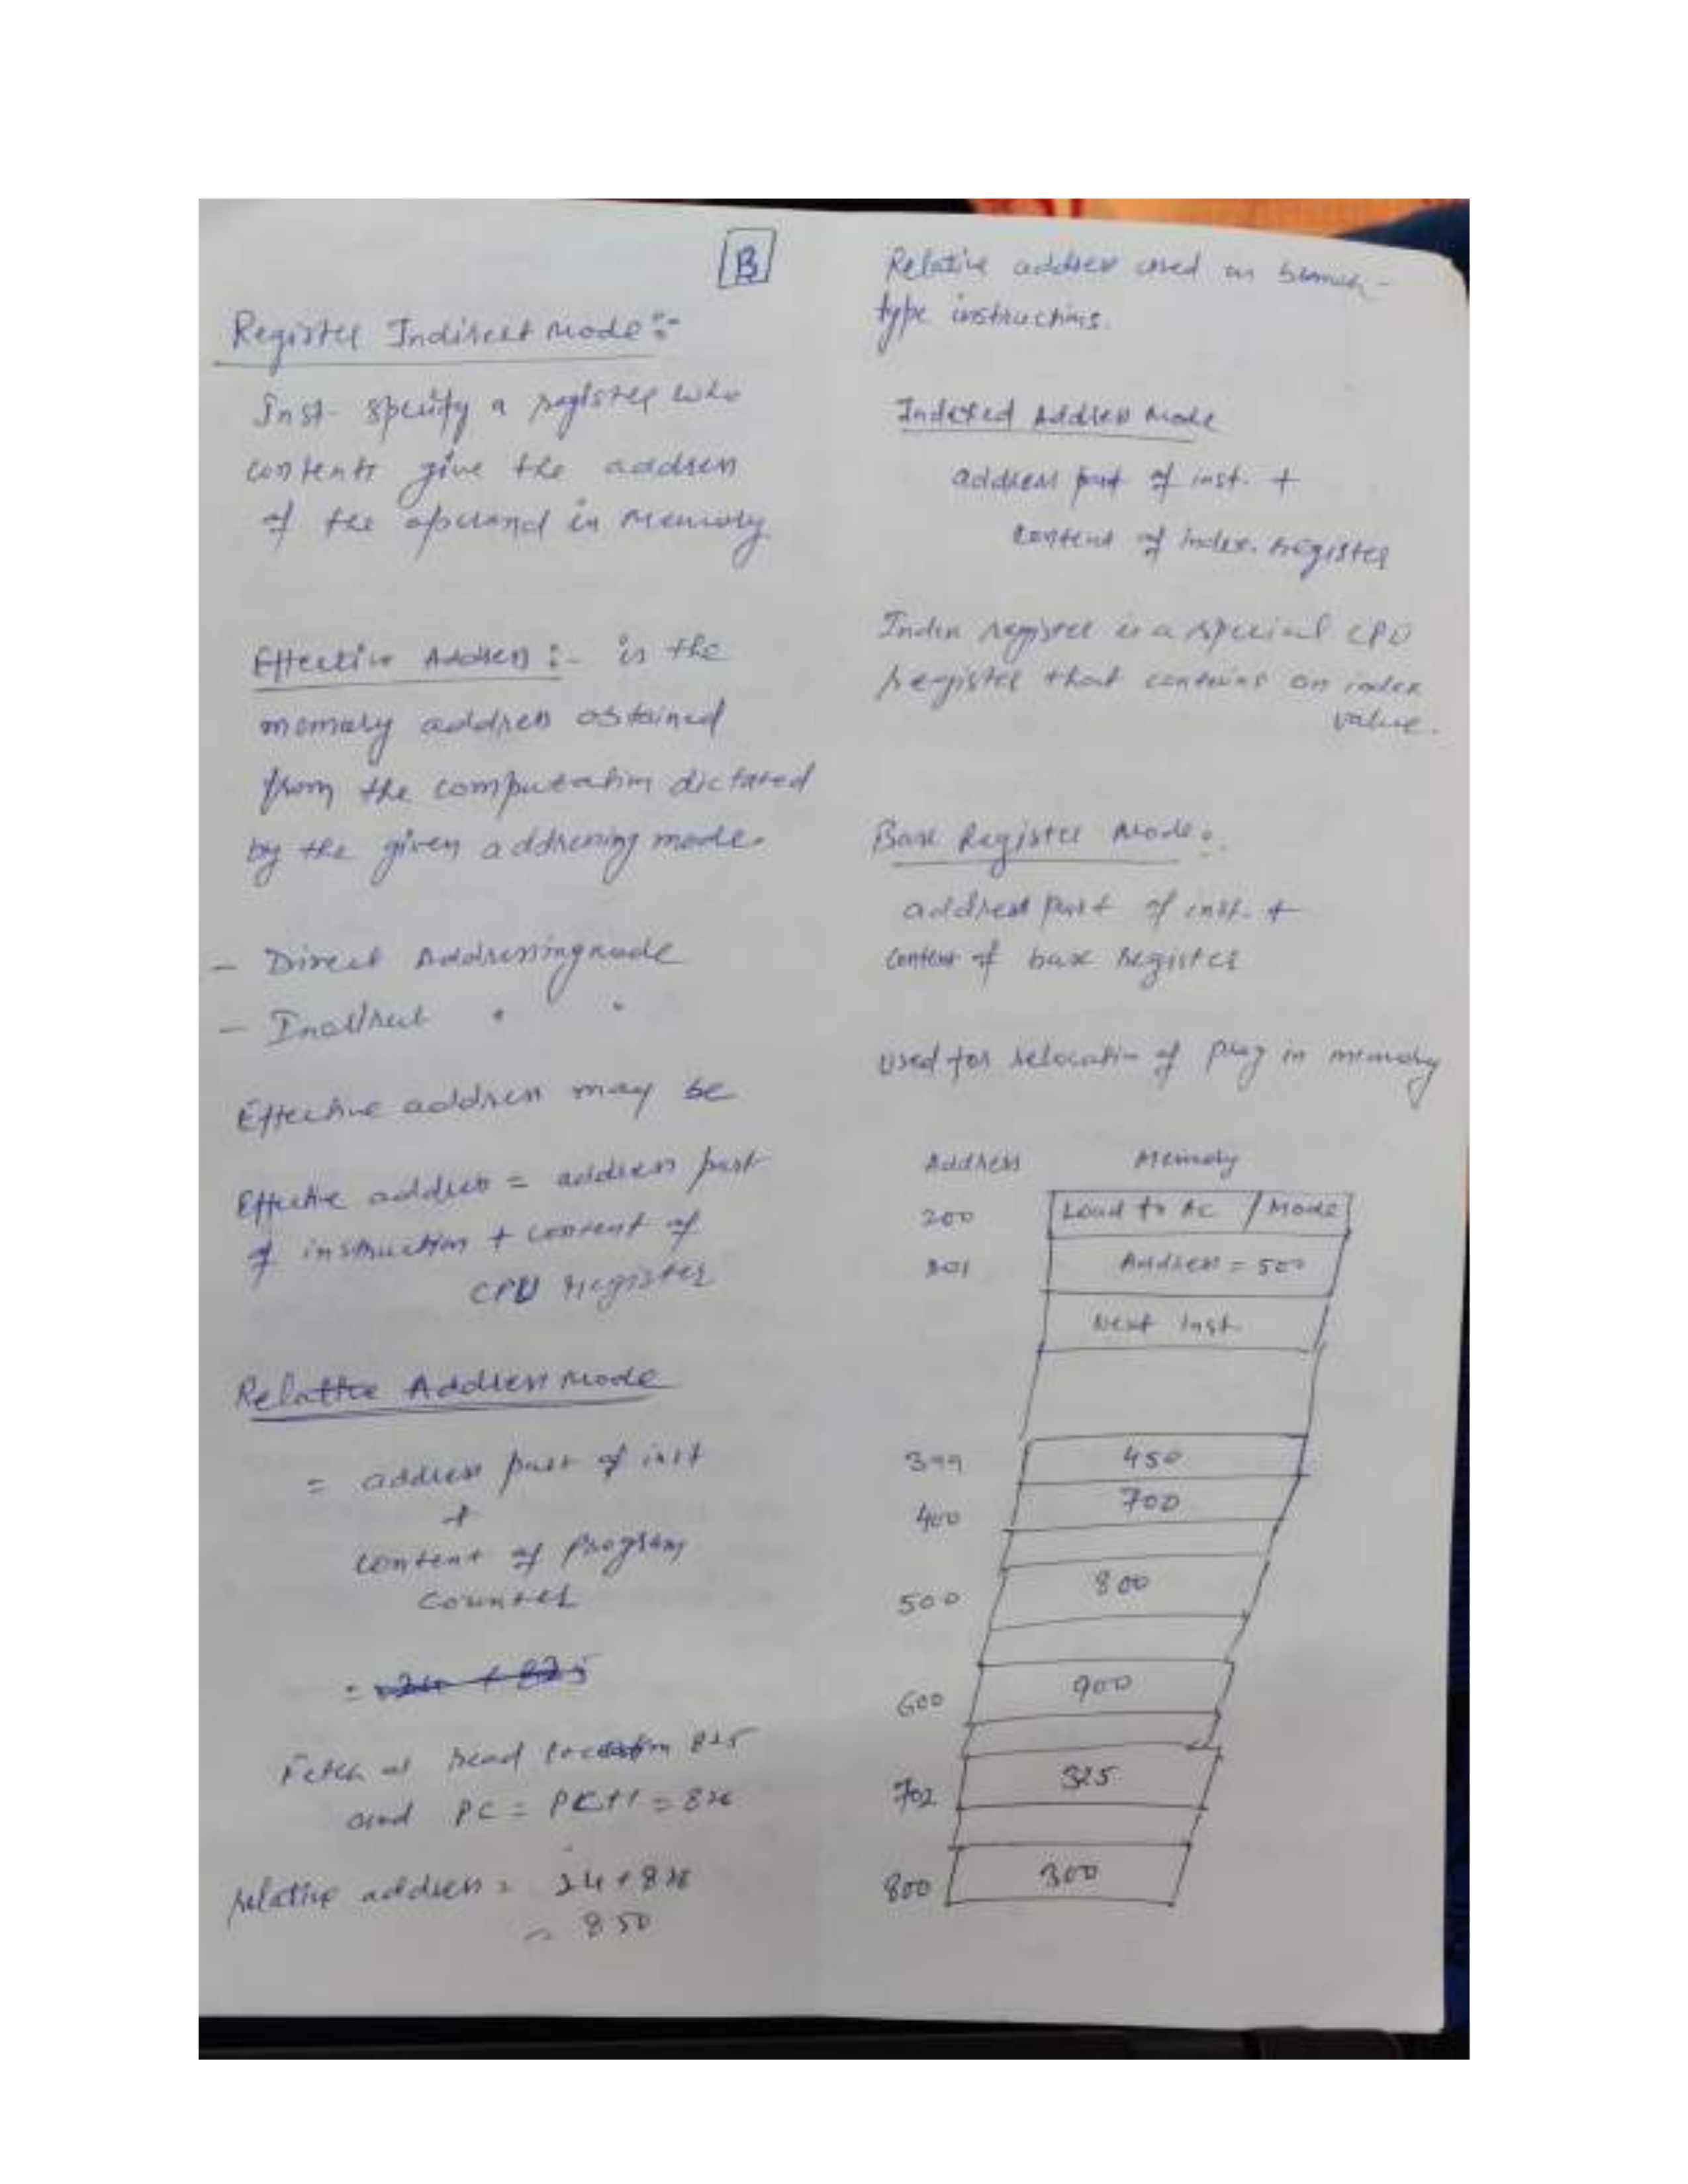 B
Register Indirect Mode :-
Inst. specify a register who
contents give the address
of the operand in Memory
Effective Address :- is the
memory address obtained
from the computation dictated
by the given addressing mode.
- Direct Addressing mode
- Indirect " "
Effective address may be
Effective address = address part
of instruction + content of
CPU register
Relative Address Mode
= address part of inst
+
content of Program
Counter
= 24 + 825
Fetch read location 825
and PC = PC+1 = 826
relative address = 24 + 826
= 850
Relative address used in branch-
type instructions.
Indexed Address Mode
address part of inst. +
content of index. register
Index register is a special CPU
register that contains an index
value.
Base Register Mode :.
address part of inst. +
content of base register
used for relocation of prog in memory
Address Memory
200 Load to AC / Mode
Address = 500
Next Inst.
399 450
400 700
500 800
600 900
702 325
800 300